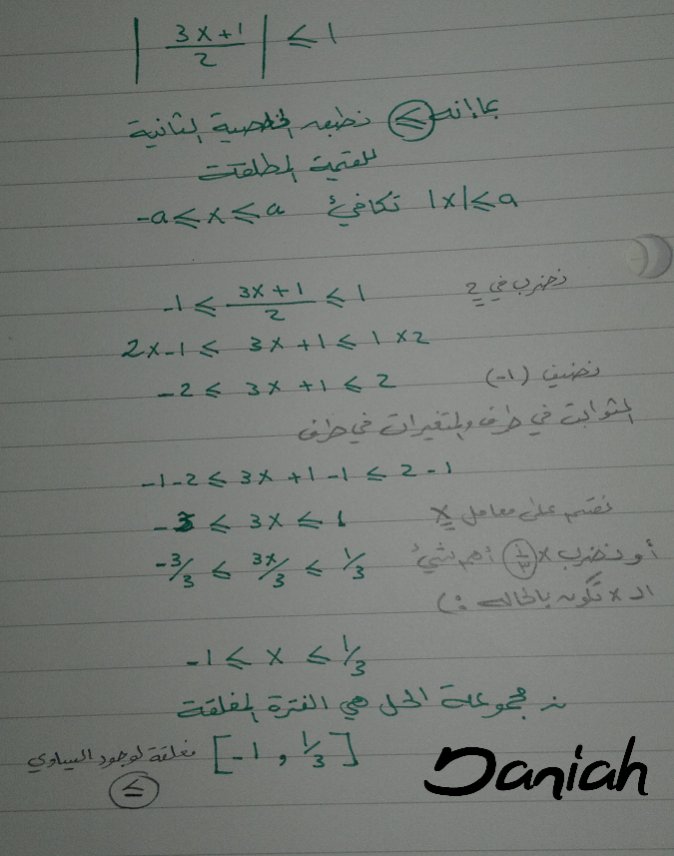 | (3x+1)/2 | ≤ 1
بما انه ≤ نطبق الخاصية الثانية
للقيمة المطلقة
|x| ≤ a تكافئ -a ≤ x ≤ a
-1 ≤ (3x+1)/2 ≤ 1 نضرب في 2
2x-1 ≤ 3x+1 ≤ 1x2
-2 ≤ 3x+1 ≤ 2 نضيف (-1)
الثوابت في طرف والمتغيرات في طرف
-1-2 ≤ 3x+1-1 ≤ 2-1
-3 ≤ 3x ≤ 1 نقسم على معامل x
-3/3 ≤ 3x/3 ≤ 1/3 أو نضرب x 1/3 أهم شيئ
الـ x تكون بالحاله :)
-1 ≤ x ≤ 1/3
∴ مجموعة الحل هي الفترة المغلقة
[-1 , 1/3] مغلقة لوجود اليساوي
≤
Daniah